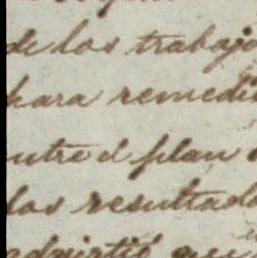 de los trabajo
para remedi
ntre el plan
los resultado
advirtió que